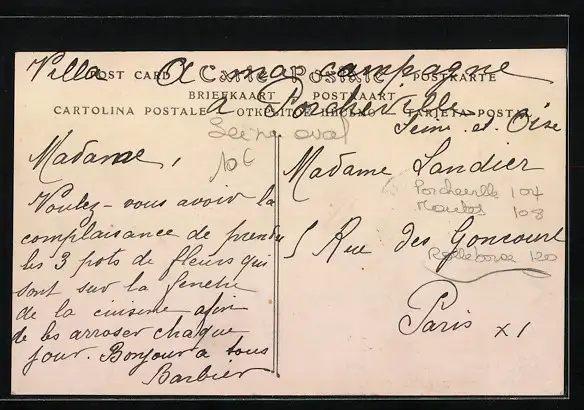 Villa A ma campagne
POST CARD CARTE POSTALE POSTKARTE
BRIEFKAART POSTKAART
à Porcheville
CARTOLINA POSTALE ОТКРЫТОЕ ПИСЬМО TARJETA POSTAL
Seine et Oise
Seine aval
10€
Madame,
Voulez-vous avoir la
complaisance de prendre
les 3 pots de fleurs qui
sont sur la fenetre
de la cuisine afin
de les arroser chaque
jour. Bonjour a tous
Barbier
Madame Landier
Porcheville 104
Mantes 108
5 Rue des Goncourt
Rolleboise 120
Paris XI